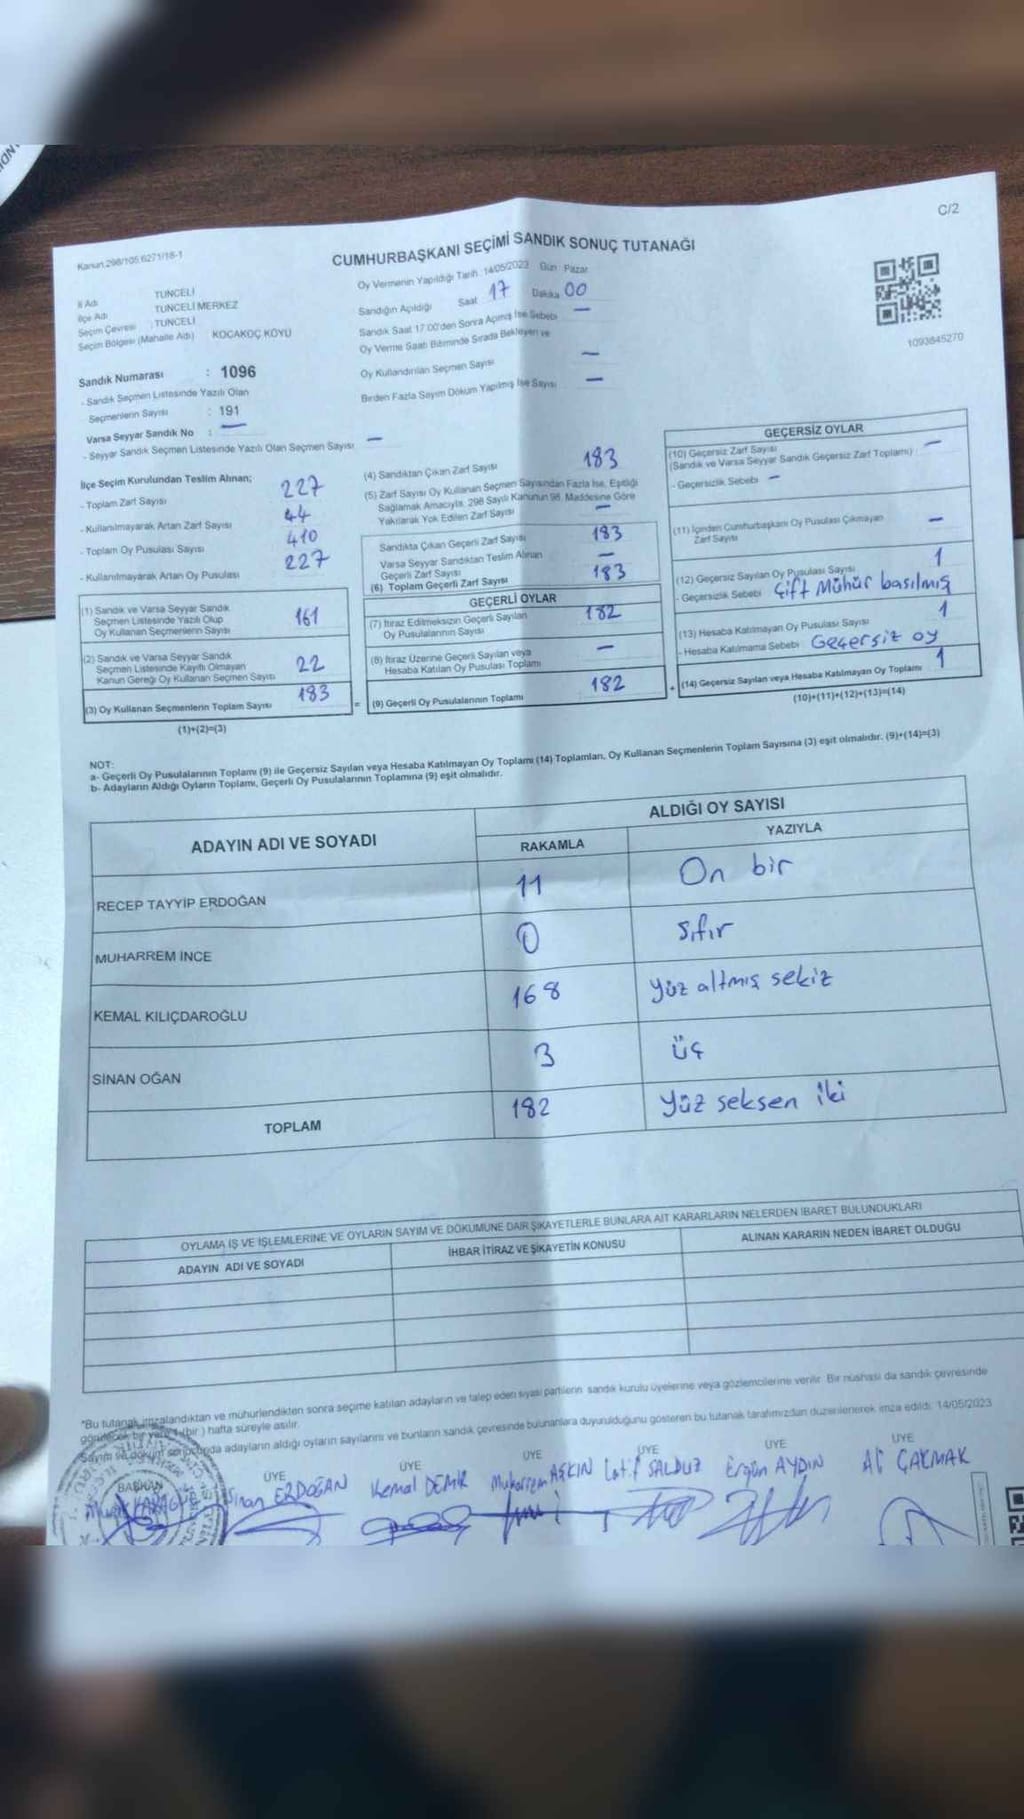 C/2
Kanun 298/105 6271/18-1
CUMHURBAŞKANI SEÇİMİ SANDIK SONUÇ TUTANAĞI
İl Adı TUNCELİ
İlçe Adı TUNCELİ MERKEZ
Seçim Çevresi : TUNCELİ
Seçim Bölgesi (Mahalle Adı) KOCAKOÇ KÖYÜ
Oy Vermenin Yapıldığı Tarih 14/05/2023 Gün Pazar
Sandığın Açıldığı Saat 17 Dakika 00
Sandık Saat 17:00'den Sonra Açılmış İse Sebebi —
Oy Verme Saati Bitiminde Sırada Bekleyen ve
Oy Kullandırılan Seçmen Sayısı —
Birden Fazla Sayım Döküm Yapılmış İse Sayısı —
1093845270
Sandık Numarası : 1096
- Sandık Seçmen Listesinde Yazılı Olan
Seçmenlerin Sayısı : 191
Varsa Seyyar Sandık No : —
- Seyyar Sandık Seçmen Listesinde Yazılı Olan Seçmen Sayısı —
İlçe Seçim Kurulundan Teslim Alınan;
- Toplam Zarf Sayısı 227
- Kullanılmayarak Artan Zarf Sayısı 44
- Toplam Oy Pusulası Sayısı 410
- Kullanılmayarak Artan Oy Pusulası 227
(1) Sandık ve Varsa Seyyar Sandık
Seçmen Listesinde Yazılı Olup
Oy Kullanan Seçmenlerin Sayısı 161
(2) Sandık ve Varsa Seyyar Sandık
Seçmen Listesinde Kayıtlı Olmayan
Kanun Gereği Oy Kullanan Seçmen Sayısı 22
(3) Oy Kullanan Seçmenlerin Toplam Sayısı 183
(1)+(2)=(3)
(4) Sandıktan Çıkan Zarf Sayısı 183
(5) Zarf Sayısı Oy Kullanan Seçmen Sayısından Fazla İse, Eşitliği
Sağlamak Amacıyla, 298 Sayılı Kanunun 98. Maddesine Göre
Yakılarak Yok Edilen Zarf Sayısı —
Sandıkta Çıkan Geçerli Zarf Sayısı 183
Varsa Seyyar Sandıktan Teslim Alınan
Geçerli Zarf Sayısı —
(6) Toplam Geçerli Zarf Sayısı 183
GEÇERLİ OYLAR
(7) İtiraz Edilmeksizin Geçerli Sayılan
Oy Pusulalarının Sayısı 182
(8) İtiraz Üzerine Geçerli Sayılan veya
Hesaba Katılan Oy Pusulası Toplamı —
= (9) Geçerli Oy Pusulalarının Toplamı 182
GEÇERSİZ OYLAR
(10) Geçersiz Zarf Sayısı
(Sandık ve Varsa Seyyar Sandık Geçersiz Zarf Toplamı) —
- Geçersizlik Sebebi —
(11) İçinden Cumhurbaşkanı Oy Pusulası Çıkmayan
Zarf Sayısı —
(12) Geçersiz Sayılan Oy Pusulası Sayısı 1
- Geçersizlik Sebebi Çift Mühür basılmış
(13) Hesaba Katılmayan Oy Pusulası Sayısı 1
- Hesaba Katılmama Sebebi Geçersiz oy
+ (14) Geçersiz Sayılan veya Hesaba Katılmayan Oy Toplamı 1
(10)+(11)+(12)+(13)=(14)
NOT:
a- Geçerli Oy Pusulalarının Toplamı (9) ile Geçersiz Sayılan veya Hesaba Katılmayan Oy Toplamı (14) Toplamları, Oy Kullanan Seçmenlerin Toplam Sayısına (3) eşit olmalıdır. (9)+(14)=(3)
b- Adayların Aldığı Oyların Toplamı, Geçerli Oy Pusulalarının Toplamına (9) eşit olmalıdır.
ADAYIN ADI VE SOYADI
ALDIĞI OY SAYISI
RAKAMLA YAZIYLA
RECEP TAYYİP ERDOĞAN 11 On bir
MUHARREM İNCE 0 sıfır
KEMAL KILIÇDAROĞLU 168 yüz altmış sekiz
SİNAN OĞAN 3 üç
TOPLAM 182 yüz seksen iki
OYLAMA İŞ VE İŞLEMLERİNE VE OYLARIN SAYIM VE DÖKÜMÜNE DAİR ŞİKAYETLERLE BUNLARA AİT KARARLARIN NELERDEN İBARET BULUNDUKLARI
ADAYIN ADI VE SOYADI İHBAR İTİRAZ VE ŞİKAYETİN KONUSU ALINAN KARARIN NEDEN İBARET OLDUĞU
*Bu tutanak imzalandıktan ve mühürlendikten sonra seçime katılan adayların ve talep eden siyasi partilerin sandık kurulu üyelerine veya gözlemcilerine verilir. Bir nüshası da sandık çevresinde
görülecek bir yere 1 (bir) hafta süreyle asılır.
Sayım ve döküm sonucunda adayların aldığı oyların sayılarını ve bunların sandık çevresinde bulunanlara duyurulduğunu gösteren bu tutanak tarafımızdan düzenlenerek imza edildi. 14/05/2023
BAŞKAN ÜYE ÜYE ÜYE ÜYE ÜYE ÜYE
Sinan ERDOĞAN Kemal DEMİR Muharrem AŞKIN Latif SALDUZ Ergün AYDIN Ali ÇAKMAK